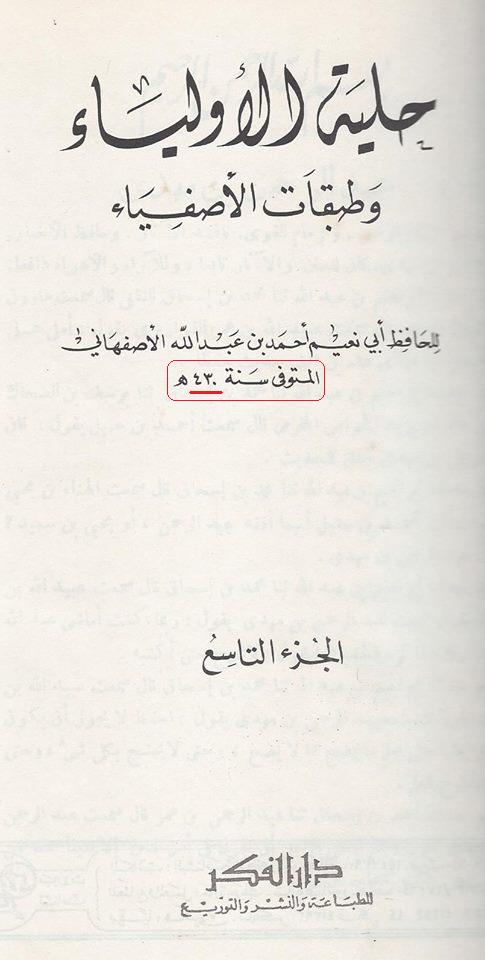 حلية الأولياء
وطبقات الأصفياء
للحافظ أبي نعيم أحمد بن عبد الله الأصفهاني
المتوفى سنة ٤٣٠ هـ
الجزء التاسع
دار الفكر
للطباعة والنشر والتوزيع